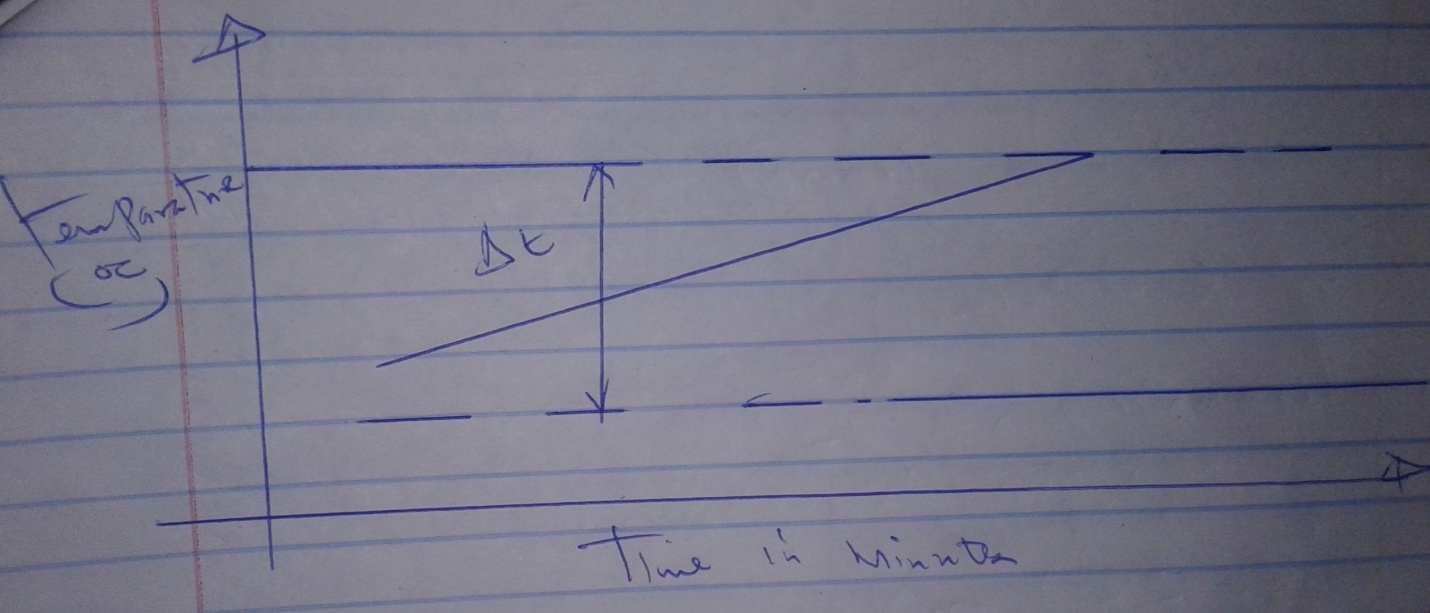 Temparature
(oc)
Δt
Time in Minutes